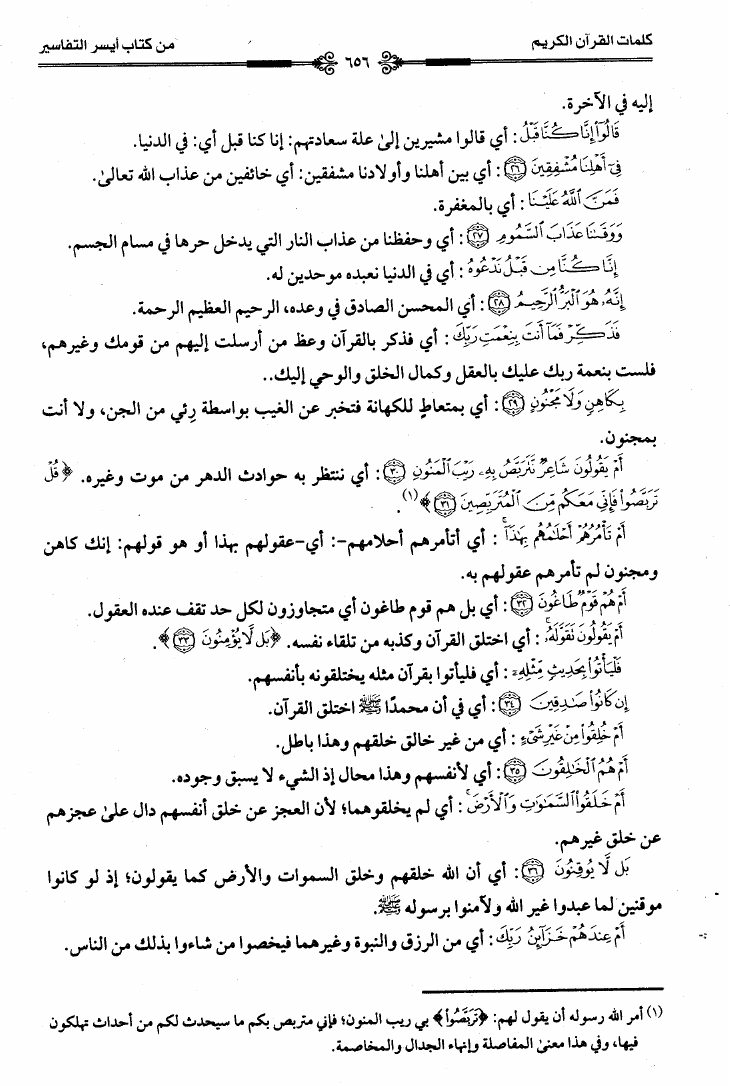 كلمات القرآن الكريم ٦٥٦ من كتاب أيسر التفاسير
إليه في الآخرة.
قَالُوٓا۟ إِنَّا كُنَّا قَبْلُ: أي قالوا مشيرين إلىٰ علة سعادتهم: إنا كنا قبل أي: في الدنيا.
فِىٓ أَهْلِنَا مُشْفِقِينَ ﴿٢٦﴾: أي بين أهلنا وأولادنا مشفقين: أي خائفين من عذاب الله تعالىٰ.
فَمَنَّ ٱللَّهُ عَلَيْنَا: أي بالمغفرة.
وَوَقَىٰنَا عَذَابَ ٱلسَّمُومِ ﴿٢٧﴾: أي وحفظنا من عذاب النار التي يدخل حرها في مسام الجسم.
إِنَّا كُنَّا مِن قَبْلُ نَدْعُوهُ: أي في الدنيا نعبده موحدين له.
إِنَّهُۥ هُوَ ٱلْبَرُّ ٱلرَّحِيمُ ﴿٢٨﴾: أي المحسن الصادق في وعده، الرحيم العظيم الرحمة.
فَذَكِّرْ فَمَآ أَنتَ بِنِعْمَتِ رَبِّكَ: أي فذكر بالقرآن وعظ من أرسلت إليهم من قومك وغيرهم،
فلست بنعمة ربك عليك بالعقل وكمال الخلق والوحي إليك..
بِكَاهِنٍ وَلَا مَجْنُونٍ ﴿٢٩﴾: أي بمتعاطٍ للكهانة فتخبر عن الغيب بواسطة رِئي من الجن، ولا أنت
بمجنون.
أَمْ يَقُولُونَ شَاعِرٌ نَّتَرَبَّصُ بِهِۦ رَيْبَ ٱلْمَنُونِ ﴿٣٠﴾: أي ننتظر به حوادث الدهر من موت وغيره. ﴿قُلْ
تَرَبَّصُوا۟ فَإِنِّى مَعَكُم مِّنَ ٱلْمُتَرَبِّصِينَ ﴿٣١﴾﴾(١).
أَمْ تَأْمُرُهُمْ أَحْلَـٰمُهُم بِهَـٰذَآ: أي أتأمرهم أحلامهم-: أي-عقولهم بهذا أو هو قولهم: إنك كاهن
ومجنون لم تأمرهم عقولهم به.
أَمْ هُمْ قَوْمٌ طَاغُونَ ﴿٣٢﴾: أي بل هم قوم طاغون أي متجاوزون لكل حد تقف عنده العقول.
أَمْ يَقُولُونَ تَقَوَّلَهُۥ: أي اختلق القرآن وكذبه من تلقاء نفسه. ﴿بَل لَّا يُؤْمِنُونَ ﴿٣٣﴾﴾.
فَلْيَأْتُوا۟ بِحَدِيثٍ مِّثْلِهِۦٓ: أي فليأتوا بقرآن مثله يختلقونه بأنفسهم.
إِن كَانُوا۟ صَـٰدِقِينَ ﴿٣٤﴾: أي في أن محمدًا ﷺ اختلق القرآن.
أَمْ خُلِقُوا۟ مِنْ غَيْرِ شَىْءٍ: أي من غير خالق خلقهم وهذا باطل.
أَمْ هُمُ ٱلْخَـٰلِقُونَ ﴿٣٥﴾: أي لأنفسهم وهذا محال إذ الشيء لا يسبق وجوده.
أَمْ خَلَقُوا۟ ٱلسَّمَـٰوَٰتِ وَٱلْأَرْضَ: أي لم يخلقوهما؛ لأن العجز عن خلق أنفسهم دال علىٰ عجزهم
عن خلق غيرهم.
بَل لَّا يُوقِنُونَ ﴿٣٦﴾: أي أن الله خلقهم وخلق السموات والأرض كما يقولون؛ إذ لو كانوا
موقنين لما عبدوا غير الله ولآمنوا برسوله ﷺ.
أَمْ عِندَهُمْ خَزَآئِنُ رَبِّكَ: أي من الرزق والنبوة وغيرهما فيخصوا من شاءوا بذلك من الناس.
(١) أمر الله رسوله أن يقول لهم: ﴿تَرَبَّصُوا۟﴾ بي ريب المنون؛ فإني متربص بكم ما سيحدث لكم من أحداث تهلكون
فيها، وفي هذا معنىٰ المفاصلة وإنهاء الجدال والمخاصمة.